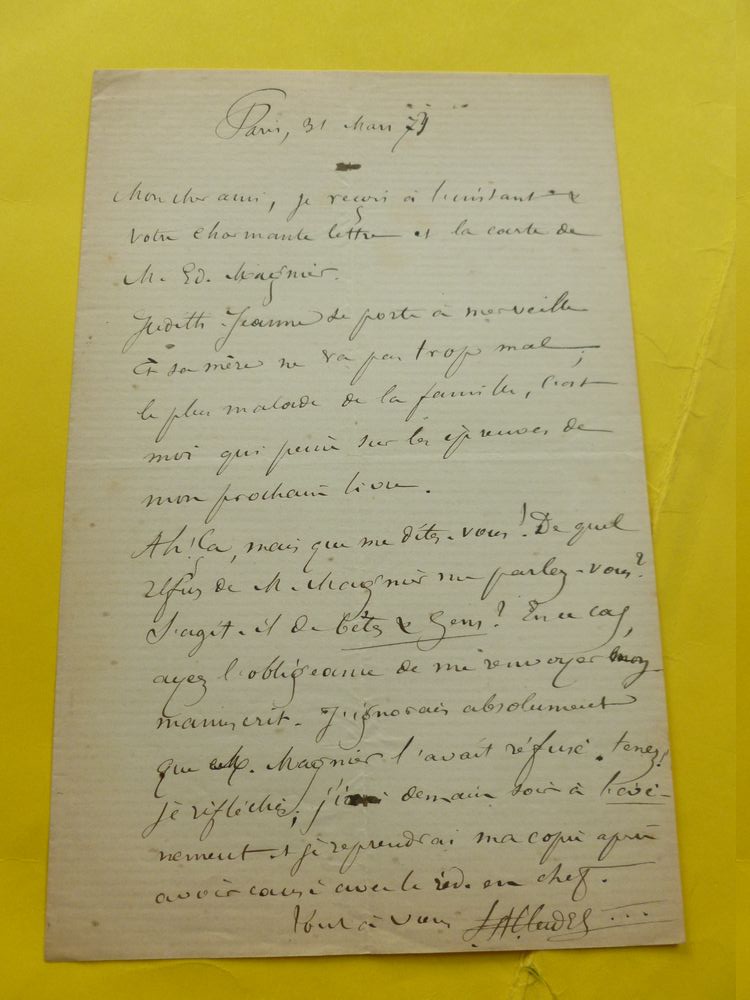 Paris, 31 Mars 79
Mon cher ami, je reçois à l'instant
votre charmante lettre et la carte de
M. Ed. Magnier.
Judith-Jeanne se porte à merveille
Et sa mère ne va pas trop mal ;
le plus malade de la famille, c'est
moi qui peine sur les épreuves de
mon prochain livre.
Ah! Ça, mais que me dites-vous! De quel
refus de M. Magnier me parlez-vous?
S'agit-il de bêtes & Gens? En ce cas,
ayez l'obligeance de me renvoyer mon
manuscrit. J'ignorais absolument
que M. Magnier l'avait réfusé. tenez!
je réfléchis; j'irai demain soir à l'évé-
nement et je reprendrai ma copie après
avoir causé avec le réd. en chef.
Tout à vous